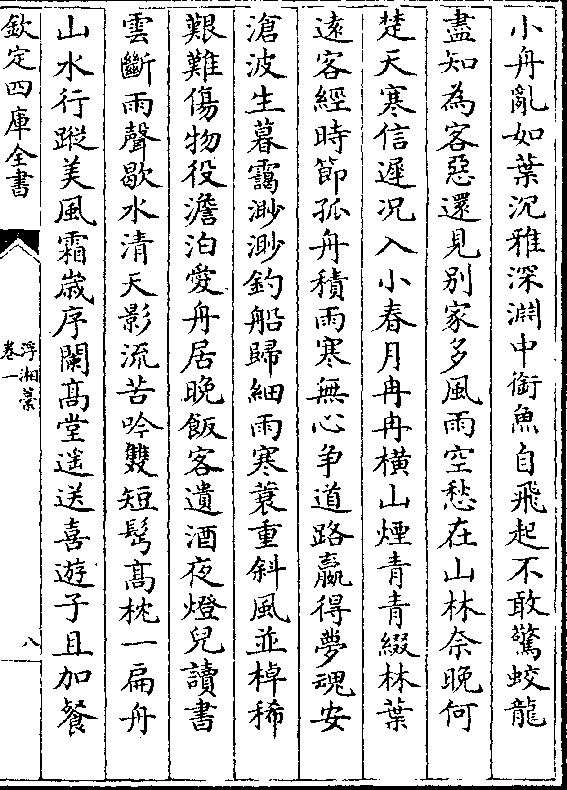 小舟亂如葉沉雅深淵中銜魚自飛起不敢驚蛟龍
盡知為客惡還見别家多風雨空愁在山林奈晚何
楚天寒信遲况入小春月冉冉橫山煙青青綴林葉
遠客經時節孤舟積雨寒無心争道路贏得夢魂安
滄波生暮靄渺渺釣船歸細雨寒蓑重斜風並棹稀
艱難傷物役澹泊愛舟居晚飯客遺酒夜燈兒讀書
雲斷雨聲歇水清天影流苦吟雙短髩高枕一扁舟
山水行蹤美風霜嵗序闌高堂遥送喜遊子且加餐
欽定四庫全書
浮湘藁
卷一
八